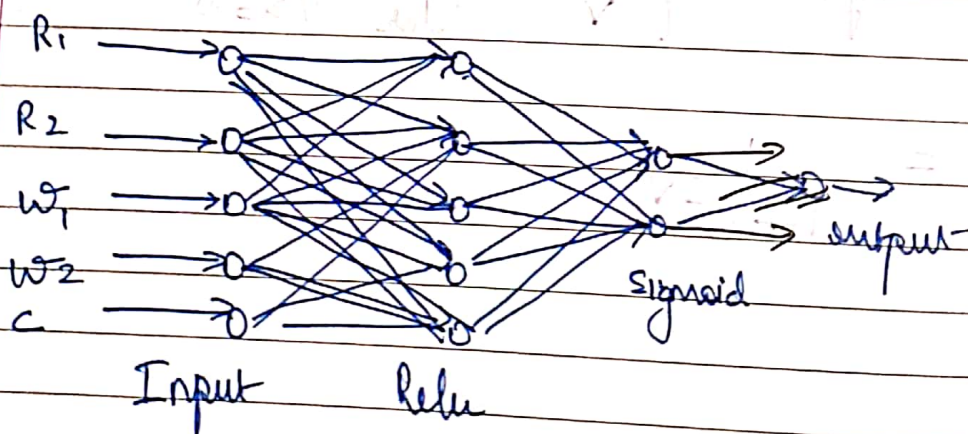 R1
R2
W1
W2
C
Input
Relu
Sigmoid
output